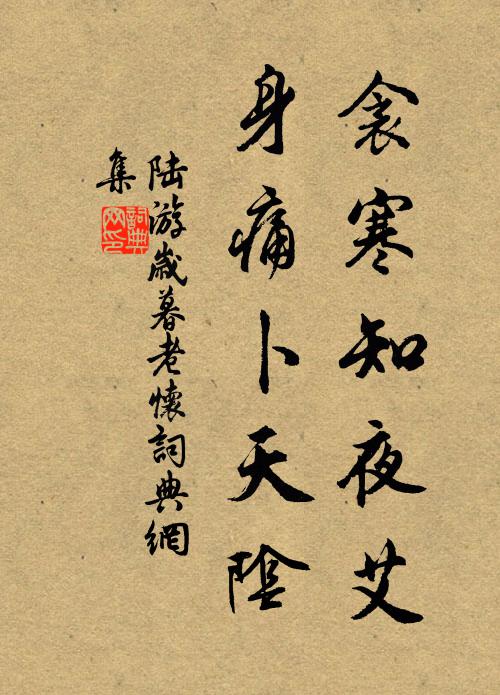 衾寒知夜艾
身痛卜天陰
陸游歲暮老懷詞典網
集
詞典
网印